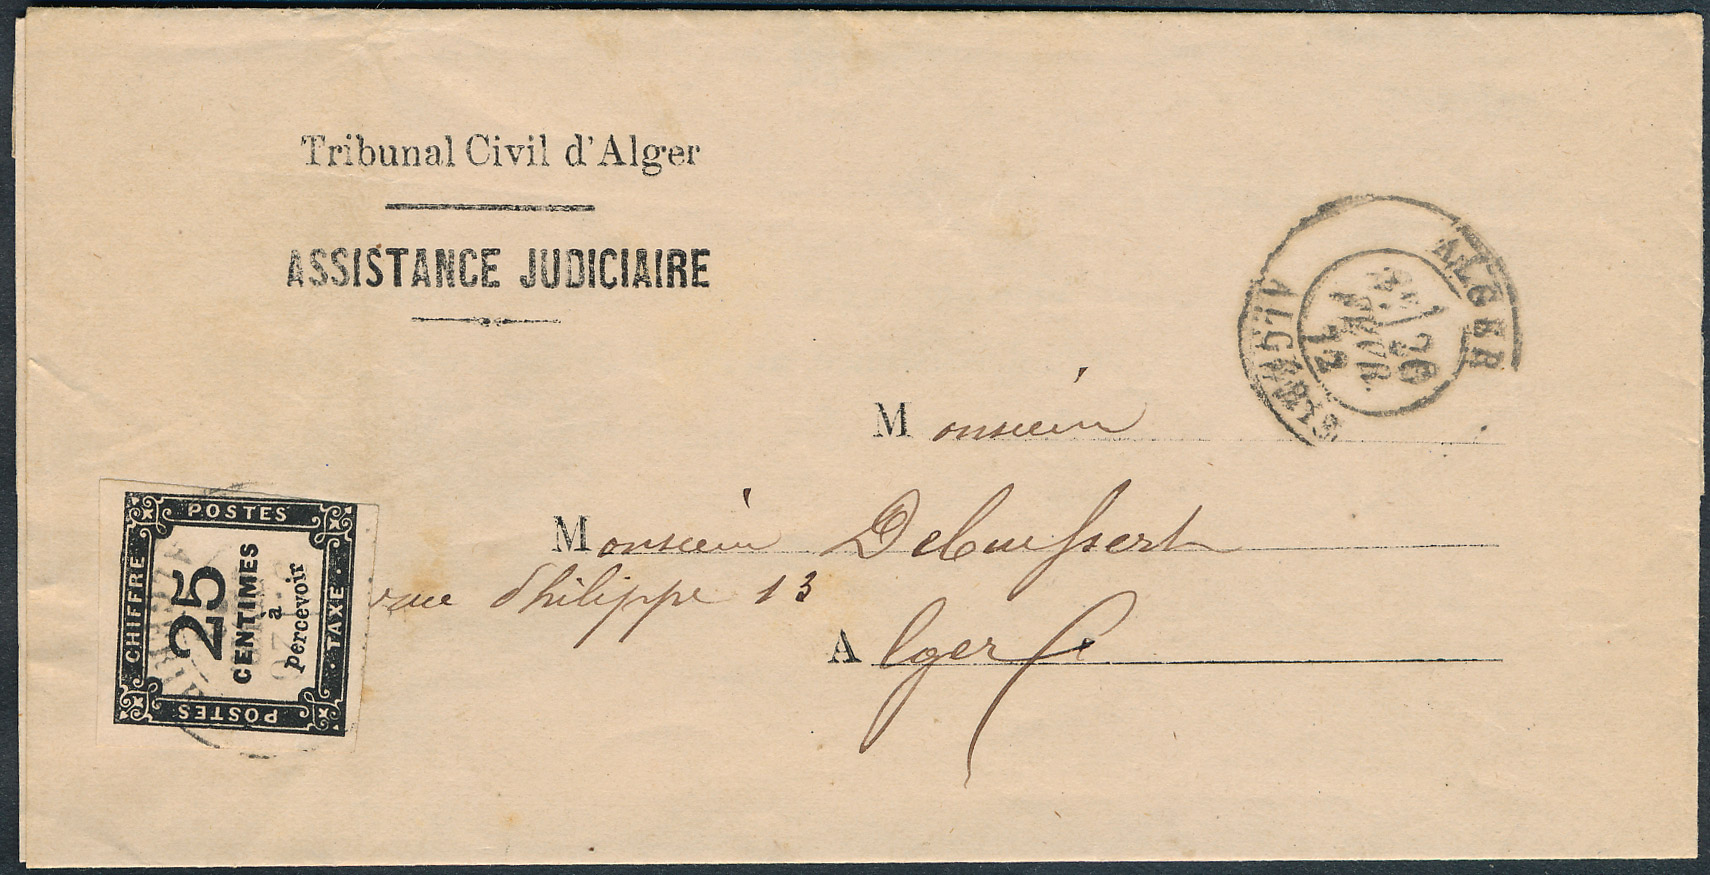 Tribunal Civil d'Alger
ASSISTANCE JUDICIAIRE
ALGER
ALGÉRIE
FEVR.
Monsieur
Monsieur
rue Philippe 13
Alger
POSTES
CHIFFRE
25
CENTIMES
à
percevoir
TAXE
POSTES